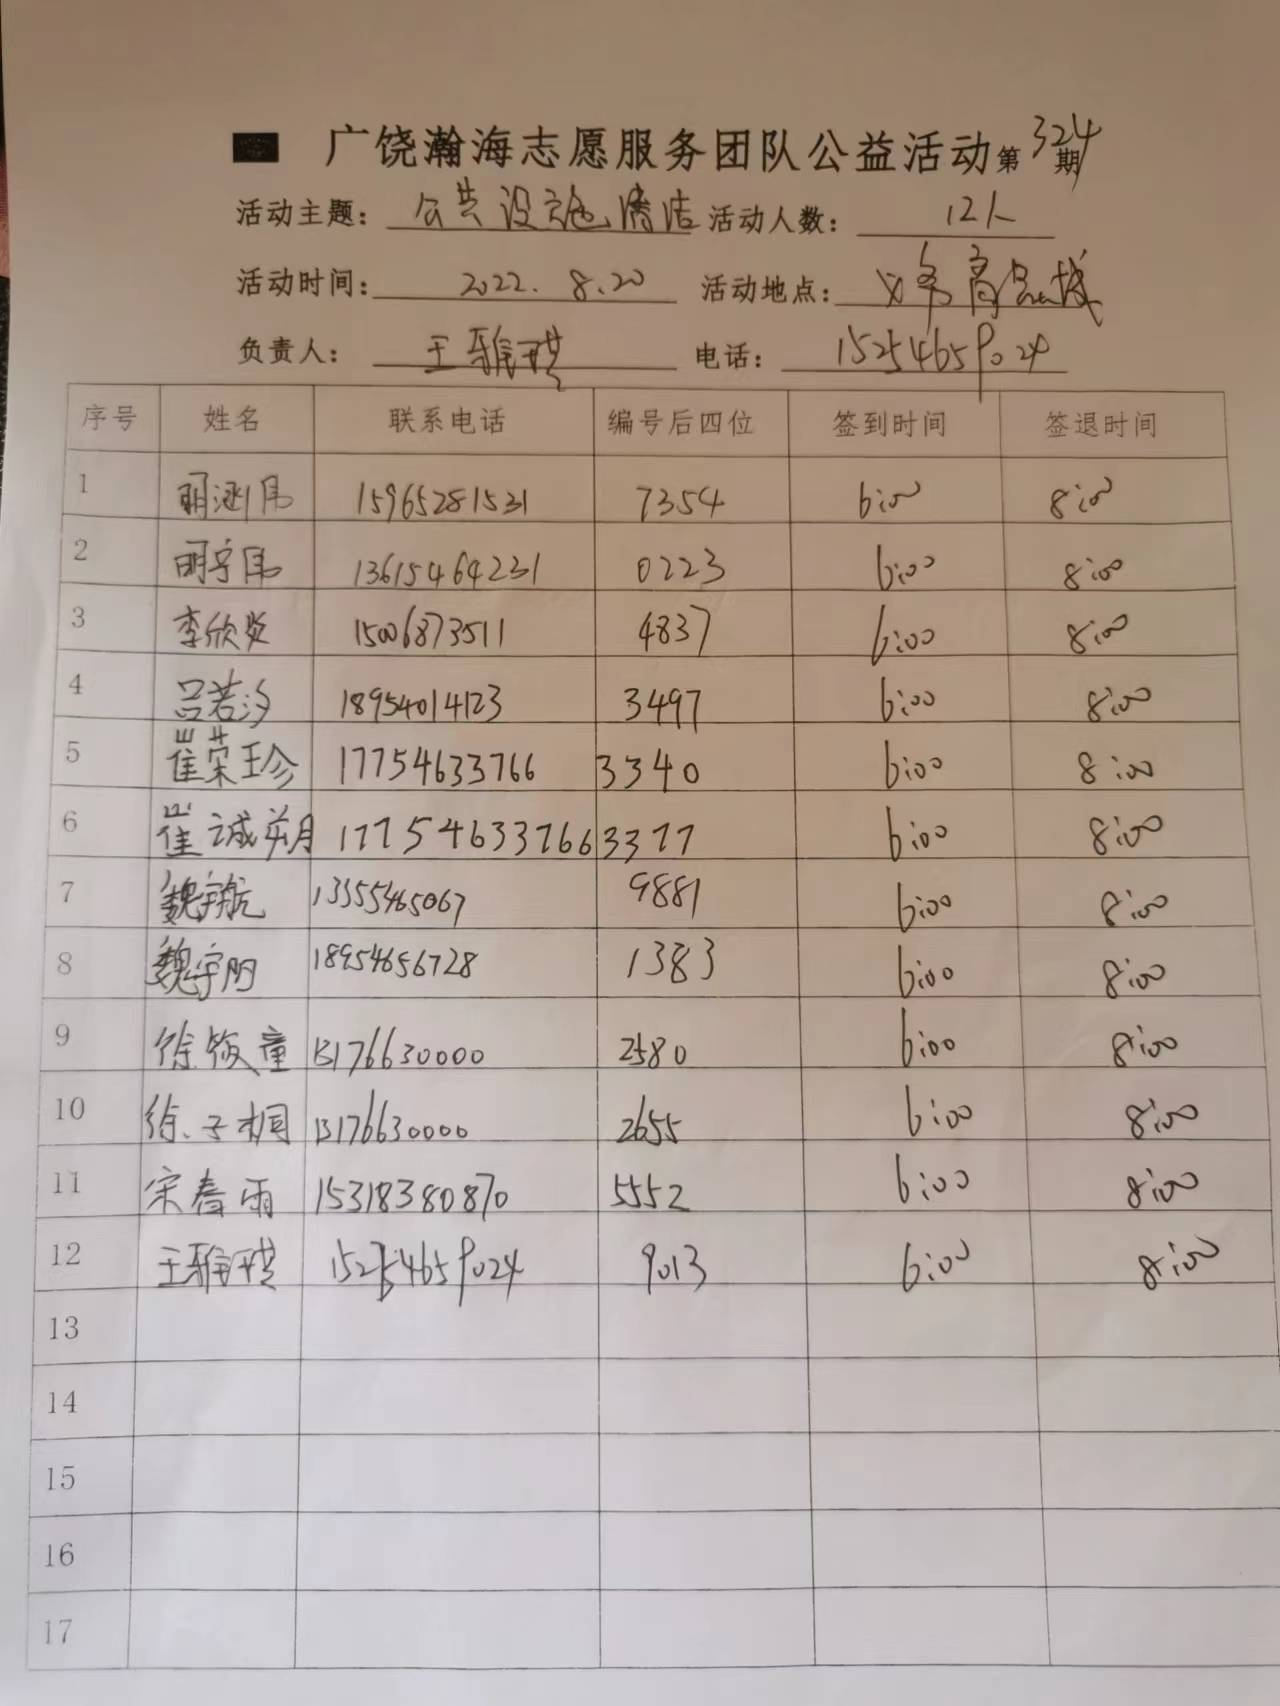 广饶瀚海志愿服务团队公益活动第324期
活动主题：公共设施清洁 活动人数：12人
活动时间：2022.8.20 活动地点：义务商品城
负责人：王雅琪 电话：15254659024
序号 姓名 联系电话 编号后四位 签到时间 签退时间
1 明涵伟 15965281531 7354 6:00 8:00
2 明宇伟 13615464231 0223 6:00 8:00
3 李欣烨 15006873511 4837 6:00 8:00
4 吕若汐 18954014123 3497 6:00 8:00
5 崔荣珍 17754633766 3340 6:00 8:00
6 崔诚朔 17754633766 3377 6:00 8:00
7 魏宇航 13355465067 9881 6:00 8:00
8 魏宇朋 18954656728 1383 6:00 8:00
9 徐筱童 13176630000 2580 6:00 8:00
10 徐子桐 13176630000 2655 6:00 8:00
11 宋春雨 15318380870 5552 6:00 8:00
12 王雅琪 15254659024 9013 6:00 8:00
13
14
15
16
17